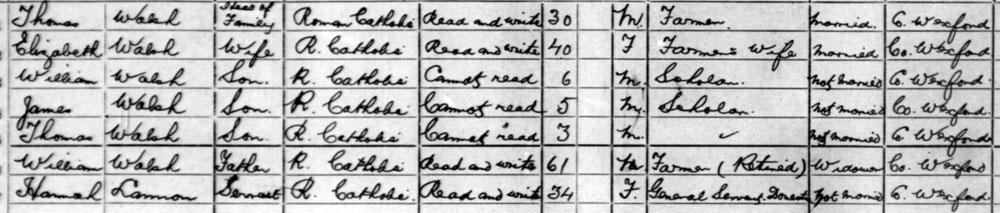 Thomas Walsh Head of Family Roman Catholic Read and write 30 M. Farmer married C. Wexford
Elizabeth Walsh Wife R. Catholic Read and write 40 F Farmers Wife married Co. Wexford
William Walsh Son. R. Catholic Cannot read 6 m. Scholar. not married C. Wexford.
James Walsh Son. R. Catholic Cannot read 5 M. Scholar. not married Co. Wexford.
Thomas Walsh Son. R. Catholic Cannot read 3 m. ✓ not married C. Wexford
William Walsh Father R. Catholic Read and write 61 m Farmer (Retired) Widower Co. Wexford
Hannah Lannon Servant R. Catholic Read and write 34 F. General Servant Domestic not married C. Wexford